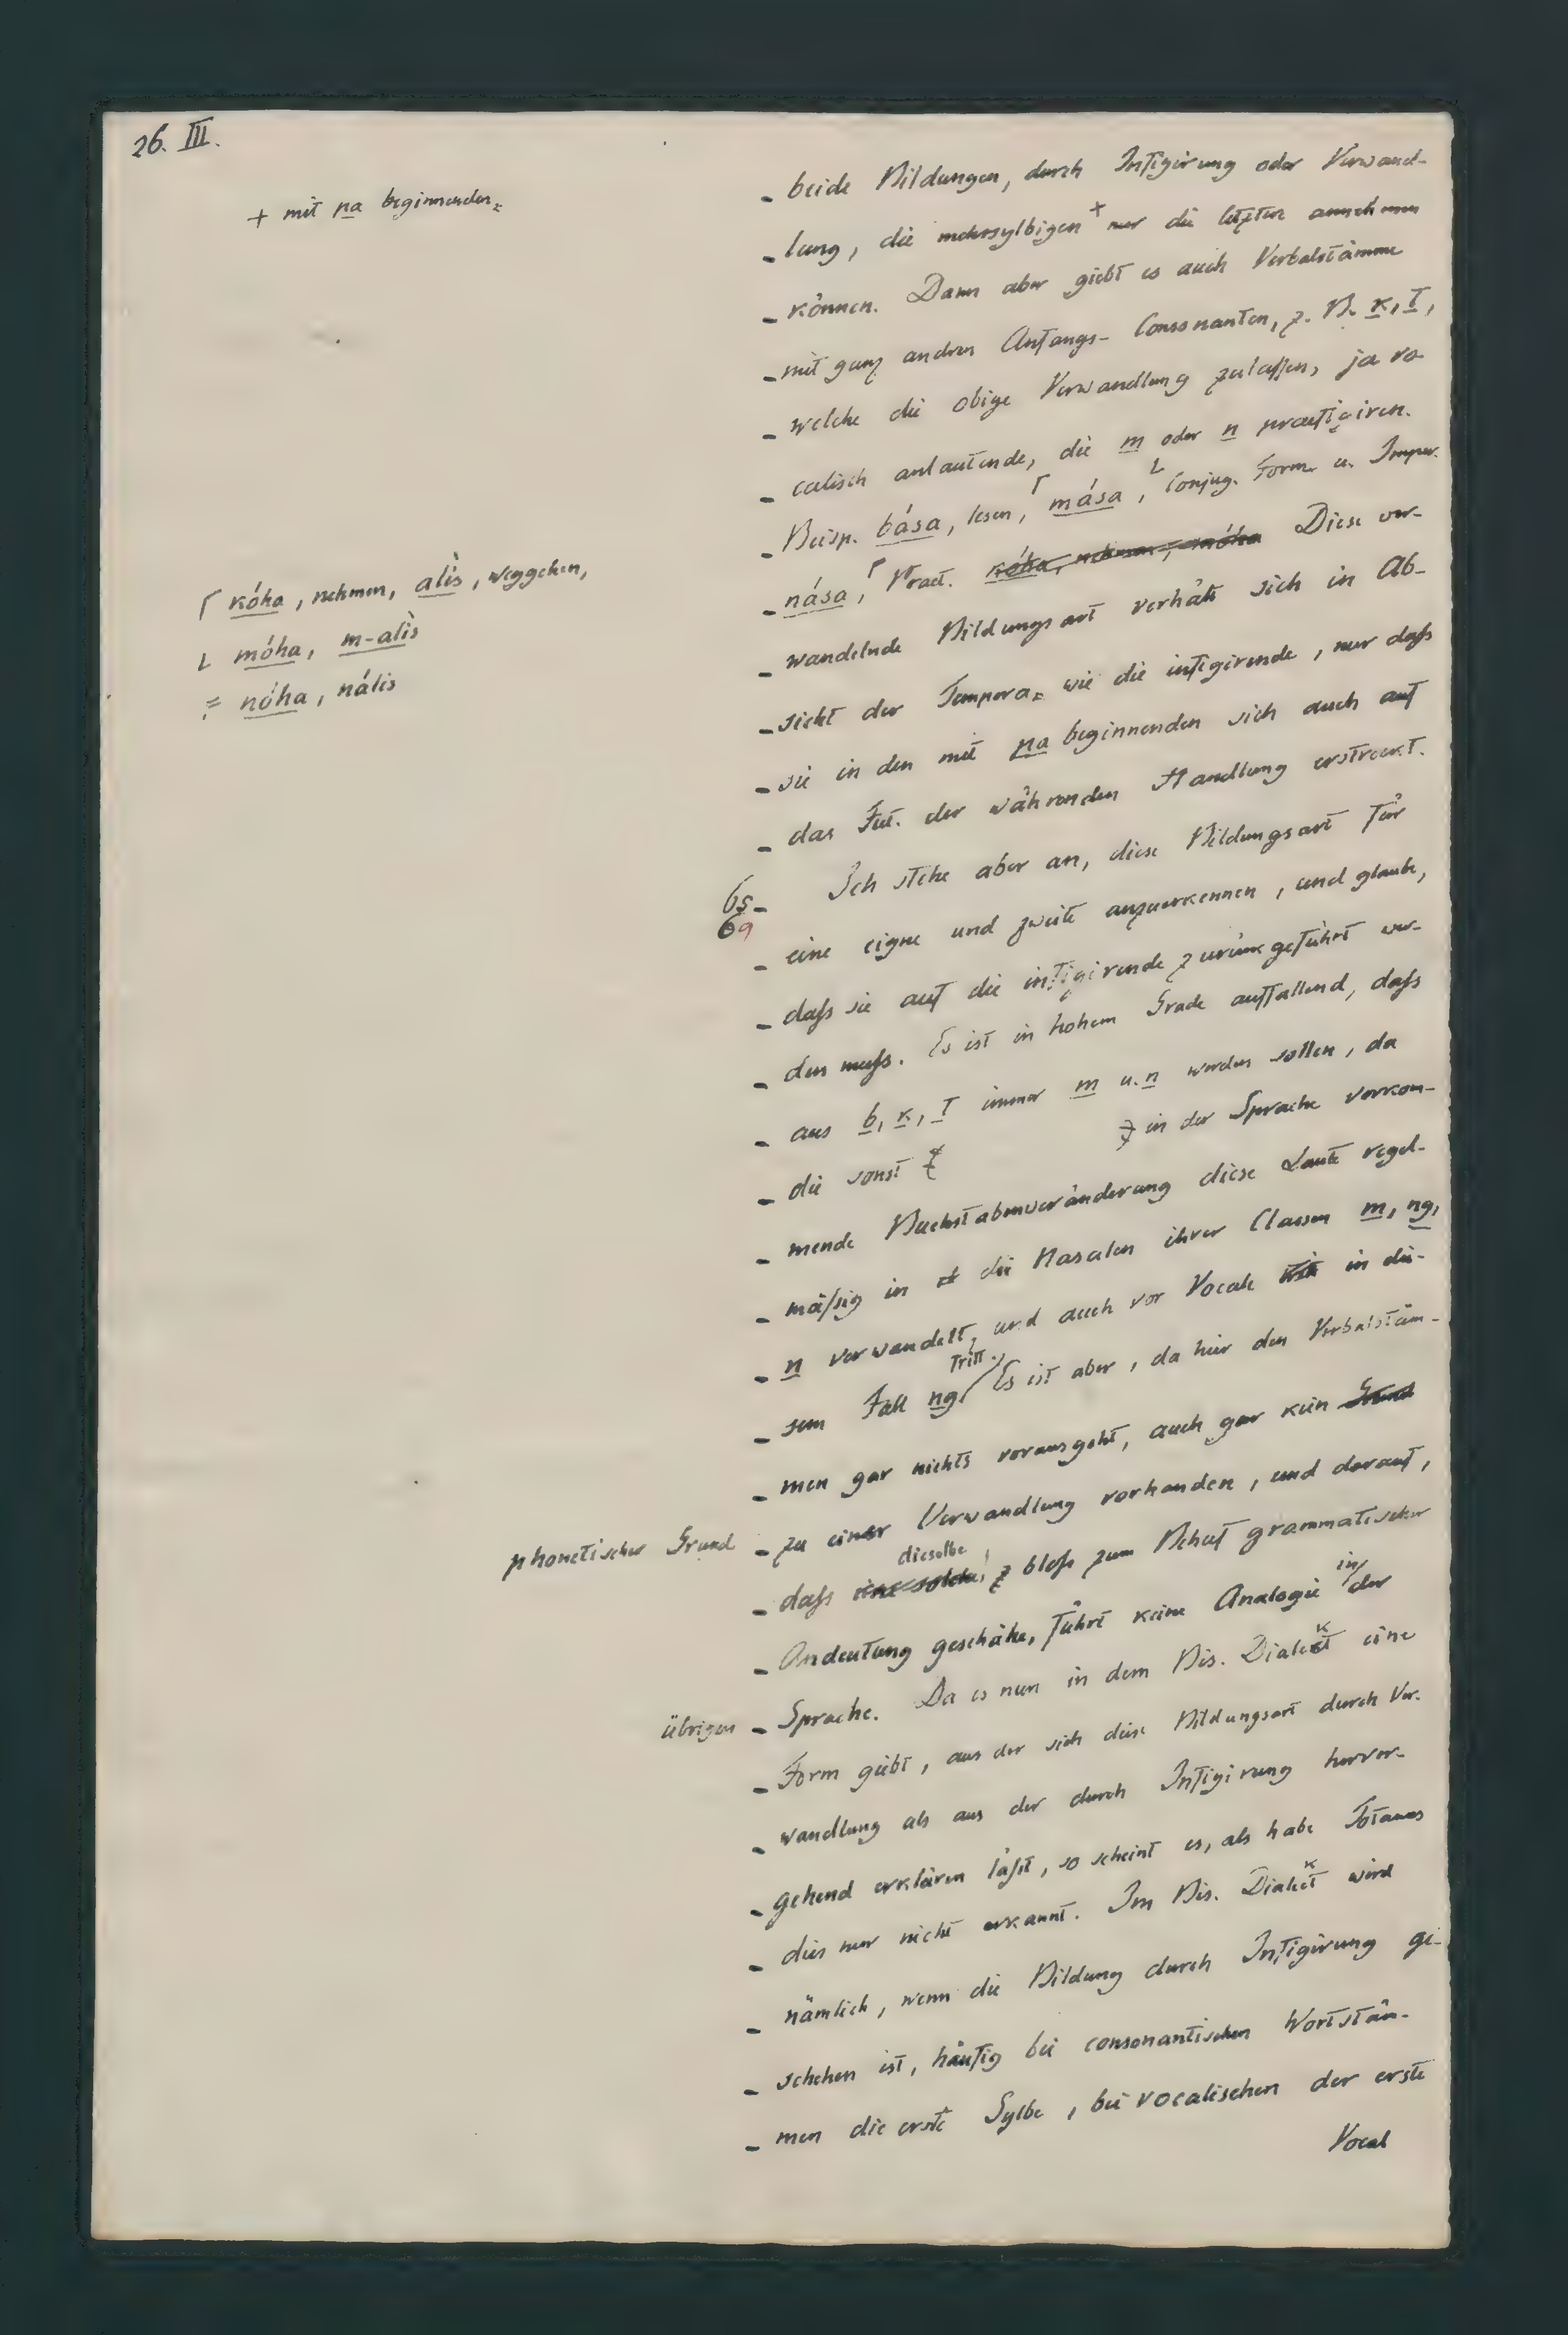 26. III.
+ mit pa beginnenden,
- beide Bildungen, durch Infigirung oder Verwand-
- lung, die mehrsylbigen + nur die letztere annehmen
- können. Dann aber giebt es auch Verbalstämme
- mit ganz andren Anfangs-Consonanten, z. B. k, t,
- welche die obige Verwandlung zulaſsen, ja vo-
- calisch anlautende, die m oder n praefigiren.
- Beisp. bása, lesen, ⌈ mása, ⌊ Conjug. Form u. Imper.
- nása, ⌈ Praet. kóha, nehmen, móha Diese ver-
⌈ kóha, nehmen, alìs, weggehen,
⌊ móha, m-alìs
nóha, nális
- wandelnde Bildungsart verhält sich in Ab-
- sicht der Tempora, wie die infigirende, nur daſs
- sie in den mit pa beginnenden sich auch auf
- das Fut. der währenden Handlung erstreckt.
65- Ich stehe aber an, diese Bildungsart für
69
- eine eigne und zweite anzuerkennen, und glaube,
- daſs sie auf die infigirende zurükgeführt wer-
- den muſs. Es ist in hohem Grade auffallend, daſs
- aus b, k, t immer m u. n werden sollen, da
- die sonst in der Sprache vorkom-
- mende Buchstabenveränderung diese Laute regel-
- mäſsig in die Nasalen ihrer Classen m, ng,
- n verwandelt, und auch vor Vocale in die-
tritt.
- sem Fall ng Es ist aber, da hier den Verbalstäm-
- men gar nichts vorausgeht, auch gar kein Grund
phonetischer Grund - zu einer Verwandlung vorhanden, und darauf,
dieselbe
- daſs eine solche, bloſs zum Behuf grammatischer
- Andeutung geschähe, führt keine Analogie in der
übrigen - Sprache. Da es nun in dem Bis. Dialekt eine
- Form giebt, aus der sich diese Bildungsart durch Ver-
- wandlung als aus der durch Infigirung hervor-
- gehend erklären läſst, so scheint es, als habe Totanes
- dies nur nicht erkannt. Im Bis. Dialekt wird
- nämlich, wenn die Bildung durch Infigirung ge-
- schehen ist, häufig bei consonantischen Wortstäm-
- men die erste Sylbe, bei vocalischen der erste
Vocal